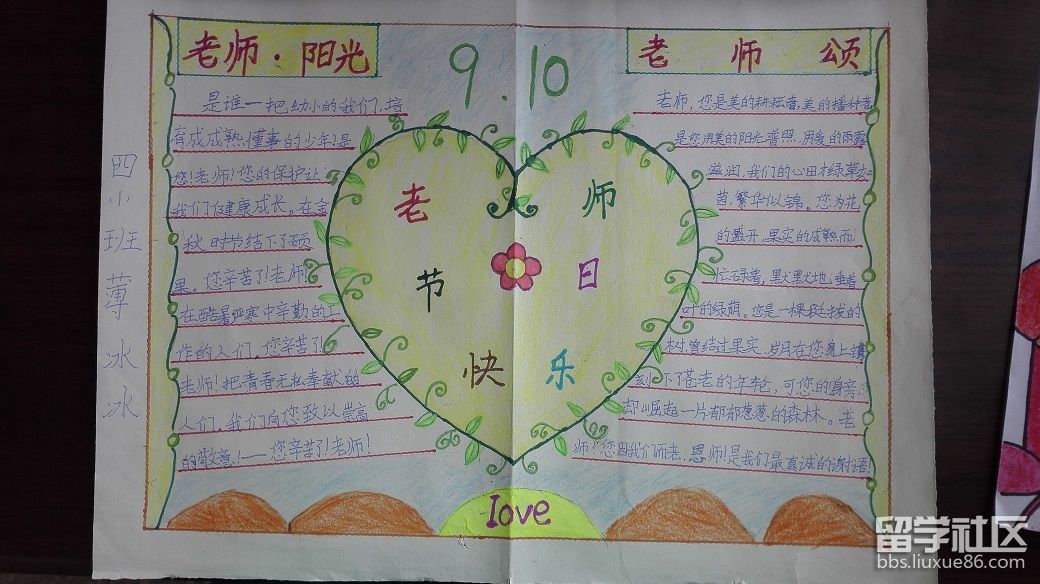 四小班薄冰冰
老师·阳光
是谁一把幼小的我们,培
育成成熟懂事的少年!是
您!老师!您的保护让
我们健康成长。在金
秋时节结下了硕
果。您辛苦了!老师!
在酷暑严寒中辛勤的工
作的人们。您辛苦了!
老师!把青春无私奉献给
人们。我们向您致以崇高
的敬意!——您辛苦了!老师!
9.10
老师
节日
快乐
love
老师颂
老师,您是美的耕耘者,美的播种者
是您用美的阳光普照,用爱的雨露
滋润,我们的心田才绿草如
茵,繁华似锦。您为花
的盛开,果实的成熟而
忙碌着,默默地垂着
叶的绿荫。您是一棵挺拔的
树曾结过果实,岁月在您身上镌
刻下了苍老的年轮,可您的身旁
却崛起一片郁郁葱葱的森林。老
师!您因我们而老,恩师!是我们最真诚的谢语!
留学社区
bbs.liuxue86.com